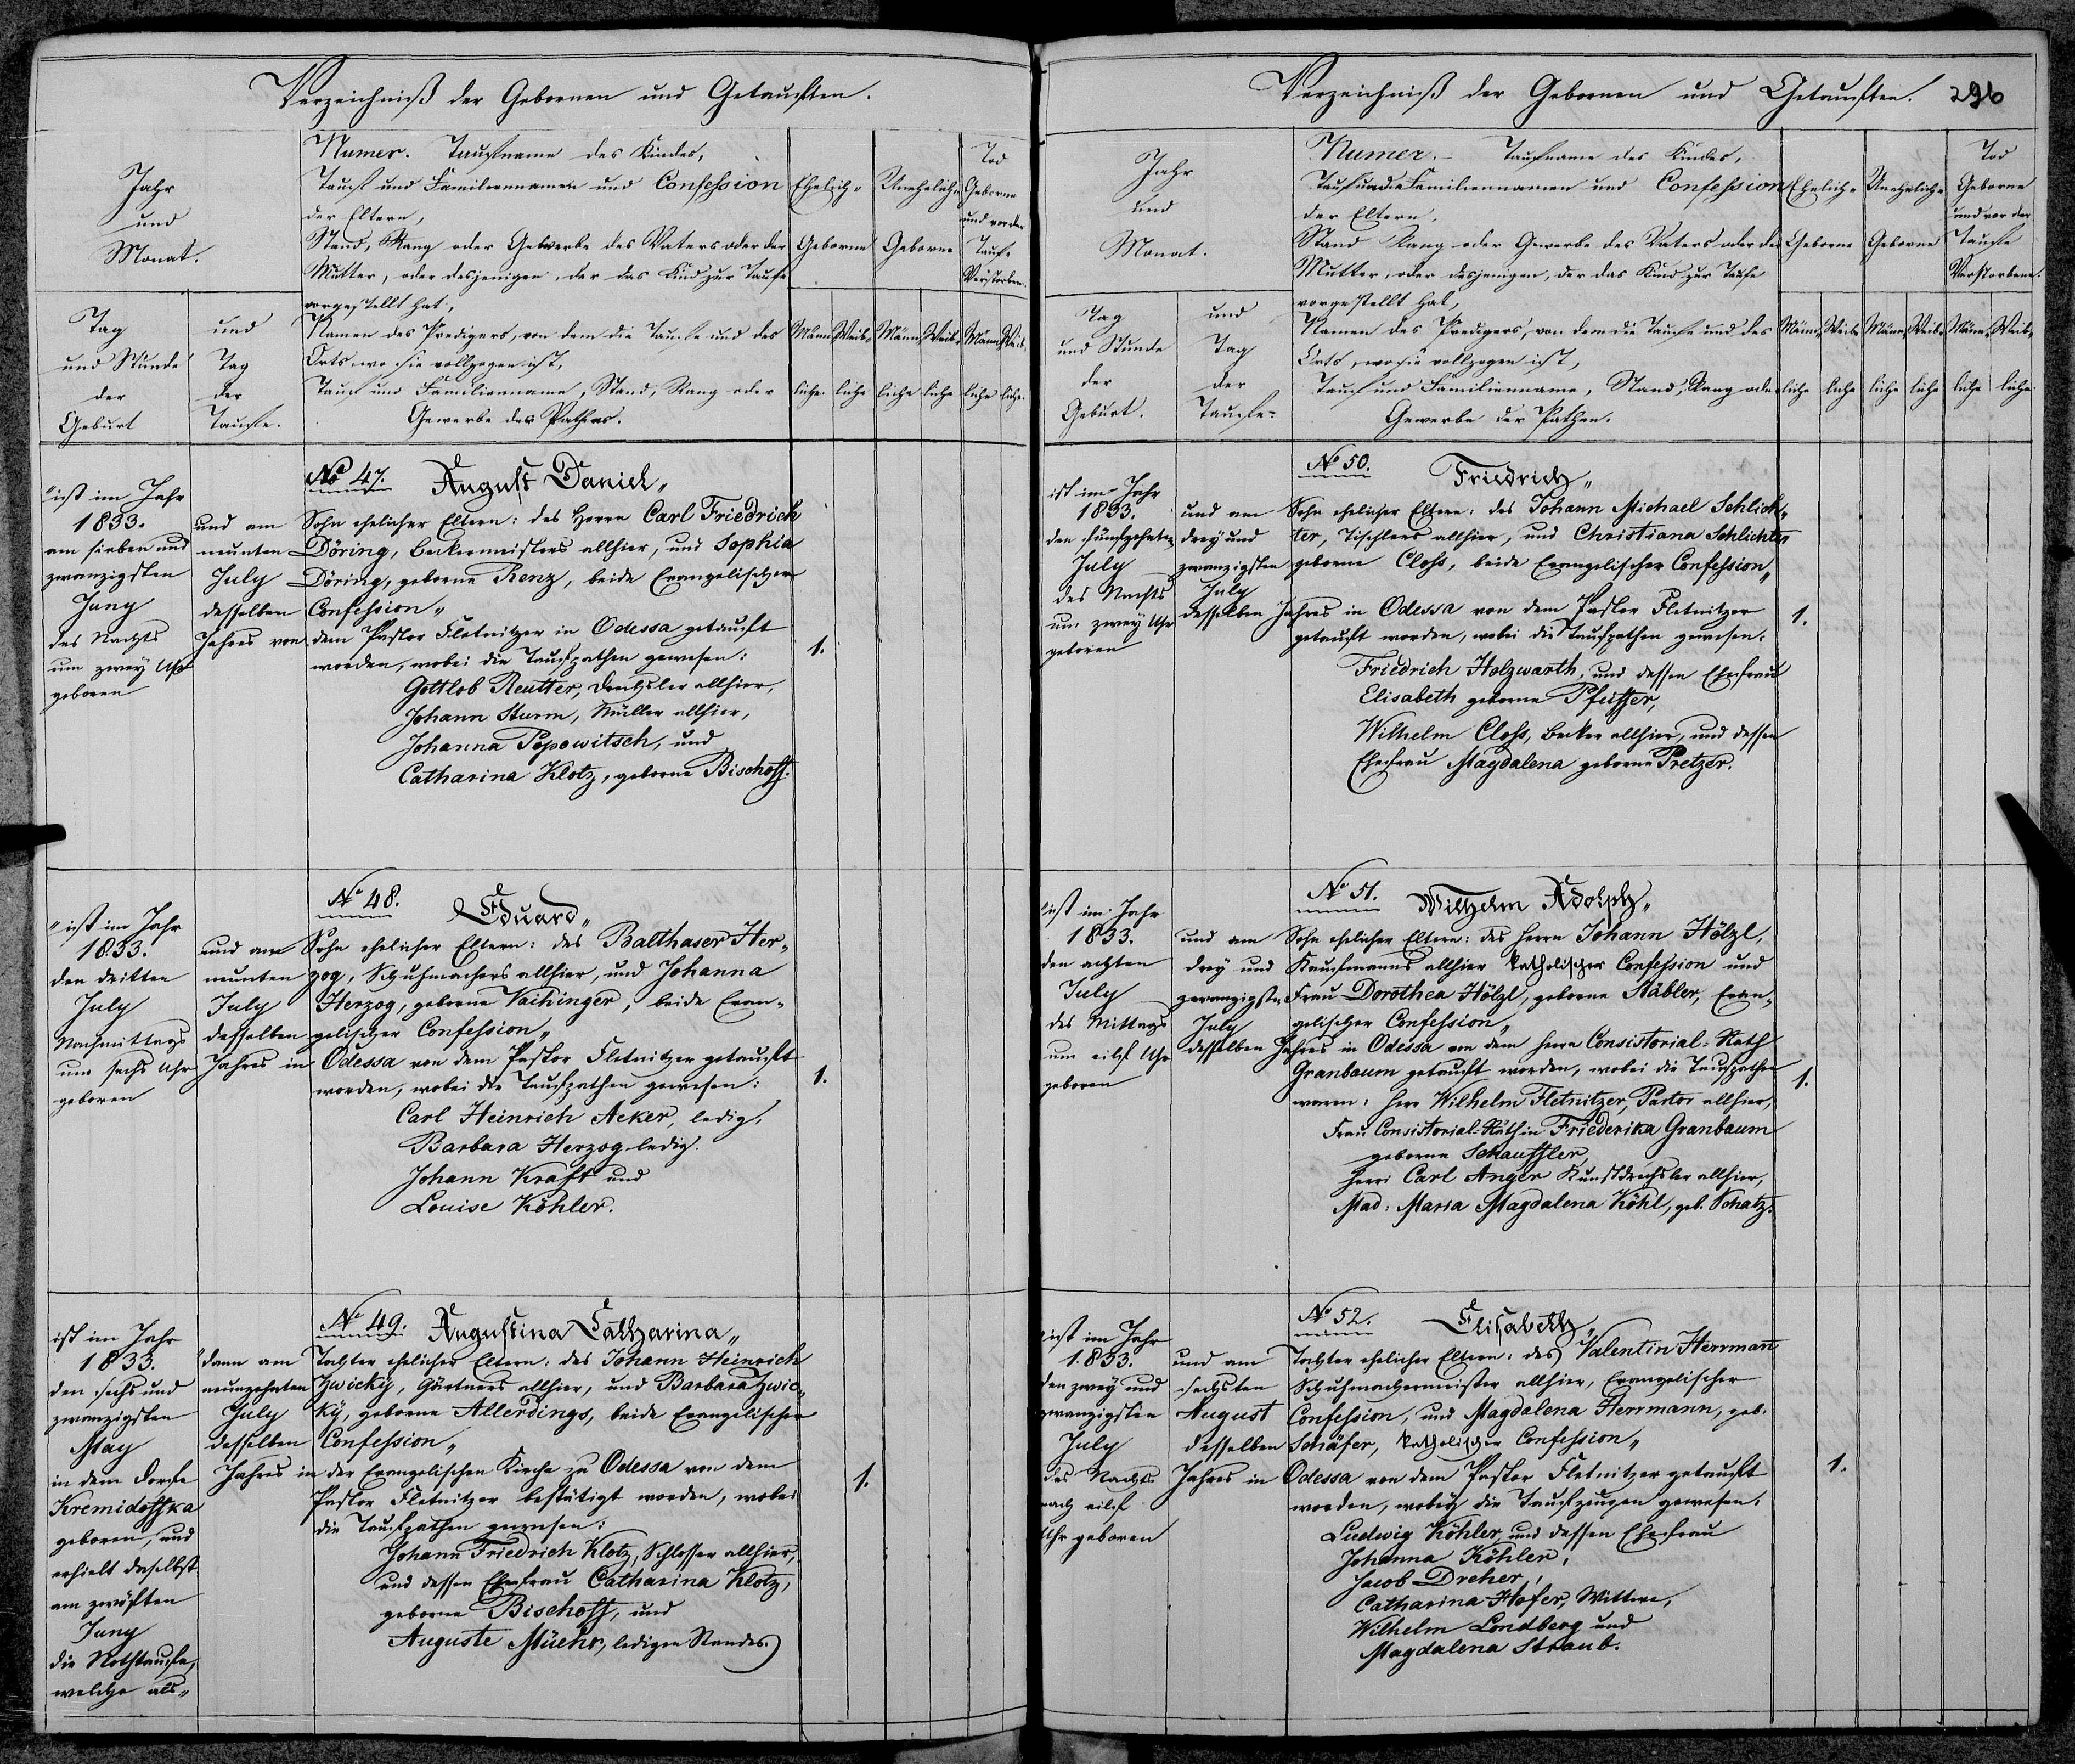 Verzeichniß der Gebornen und Getauften.
Jahr
und
Monat.
Tag
und Stunde
der
Geburt
und
Tag
der
Taufe.
Numer. Taufname des Kindes,
Tauf und Familiennamen und Confession
der Eltern,
Stand, Rang oder Gewerbe des Vaters oder der
Mutter, oder desjenigen, der das Kind zur Taufe
vorgestellt hat,
Namen des Predigers, von dem die Taufe und des
Orts, wo sie vollzogen ist,
Tauf und Familienname, Stand, Rang oder
Gewerbe des Pathen.
Ehelich-
Geborne
Unehelich-
Geborne
Tod
Geborne
und vor der
Taufe
Verstorbene.
Männ- Weib- Männ- Weib- Männ- Weib-
liche liche liche liche liche liche
ist im Jahr
1833.
am sieben und
zwanzigsten
Juny
des Nachts
um zwey Uhr
geboren
und am
neunten
July
desselben
Jahres von
No 47. August Daniel„
Sohn ehelicher Eltern: des Herrn Carl Friedrich
Döring, Beckermeisters allhier, und Sophia
Döring, geborne Renz, beide Evangelischer
Confession„
dem Pastor Fletnitzer in Odessa getauft
worden, wobei die Taufpathen gewesen:
Gottlob Reutter, Drechsler allhier,
Johann Sturm, Müller allhier,
Johanna Popowitsch, und
Catharina Klotz, geborne Bischoff.
1.
„ist im Jahr
1833.
den dritten
July
Nachmittags
um sechs Uhr
geboren
und am
neunten
July
desselben
Jahres in
No 48.
Eduard„
Sohn ehelicher Eltern: des Balthaser Her-
zog, Schuhmachers allhier, und Johanna
Herzog, geborne Vaihinger, beide Evan-
gelischer Confession„
Odessa von dem Pastor Fletnitzer getauft
worden, wobei die Taufpathen gewesen:
Carl Heinrich Acker, ledig,
Barbara Herzog ledig.
Johann Kraft und
Louise Köhler.
1.
ist im Jahr
1833.
den sechs und
zwanzigsten
May
in dem Dorfe
Kremidoffka
geboren, und
erhielt daselbst
am zwölften
Juny
die Nothtaufe,
welche als„
dann am
neunzehnten
July
desselben
Jahres in
No 49. Augustina Catharina„
Tochter ehelicher Eltern: des Johann Heinrich
Zwicky, Gärtners allhier, und Barbara Zwic-
ky, geborne Allerdings, beide Evangelischer
Confession„
der Evangelischen Kirche zu Odessa von dem
Pastor Fletnitzer bestätigt worden, wobei
die Taufpathen gewesen:
Johann Friedrich Klotz, Schlosser allhier,
und dessen Ehefrau Catharina Klotz,
geborne Bischoff, und
Auguste Müehr, ledigen Standes.
1.
Verzeichniß der Gebornen und Getauften. 296
Jahr
und
Monat.
Tag
und Stunde
der
Geburt.
und
Tag
der
Taufe
Numer. Taufname des Kindes,
Tauf und Familiennamen und Confession
der Eltern,
Stand Rang oder Gewerbe des Vaters oder der
Mutter, oder desjenigen, der das Kind zur Taufe
vorgestellt hat,
Namen des Predigers, von dem die Taufe und des
Orts, wo sie vollzogen ist,
Tauf und Familienname, Stand, Rang oder
Gewerbe der Pathen.
Ehelich-
Geborne
Unehelich-
Geborne
Tod
Geborne
und vor der
Taufe
Verstorbene.
Männ- Weib- Männ- Weib- Männ- Weib-
liche liche liche liche liche liche
ist im Jahr
1833.
den fünfzehnten
July
des Nachts
um zwey Uhr
geboren
und am
drey und
zwanzigsten
July
desselben
No 50.
Friedrich„
Sohn ehelicher Eltern: des Johann Michael Schlich-
ter, Tischlers allhier, und Christiana Schlichter
geborne Closs, beide Evangelischer Confession„
Jahres in Odessa von dem Pastor Fletnitzer
getauft worden, wobei die Taufpathen gewesen:
Friedrich Holzwarth, und dessen Ehefrau
Elisabeth geborne Pfitzer,
Wilhelm Closs, Becker allhier, und dessen
Ehefrau Magdalena geborne Pretzer.
1.
ist im Jahr
1833.
den achten
July
des Mittags
um eilf Uhr
geboren
und am
drey und
zwanzigsten
July
desselben
No 51. Wilhelm Adolph„
Sohn ehelicher Eltern: des Herrn Johann Hölzl,
Kaufmanns allhier katholischer Confession und
Frau Dorothea Hölzl, geborne Stäbler, Evan-
gelischer Confession„
Jahres in Odessa von dem Herrn Consistorial-Rath
Granbaum getauft worden, wobei die Taufpathen
waren: Herr Wilhelm Fletnitzer, Pastor allhier,
Frau Consistorial-Räthin Friederika Granbaum
geborne Schauffler,
Herr Carl Anger Kunstdrechsler allhier,
Mad: Maria Magdalena Köhl, geb. Schatz.
1.
ist im Jahr
1833.
den zwey und
zwanzigsten
July
des Nachts
nach eilf
Uhr geboren
und am
sechsten
August
desselben
Jahres in
No 52.
Elisabeth„
Tochter ehelicher Eltern: des Valentin Herrman
Schuhmachermeister allhier, Evangelischer
Confession, und Magdalena Herrmann, geb.
Schäfer, katholischer Confession„
Odessa von dem Pastor Fletnitzer getauft
worden, wobey die Taufzeugen gewesen:
Ludwig Köhler, und dessen Ehefrau
Johanna Köhler,
Jacob Dreher,
Catharina Hofer, Wittwe,
Wilhelm Londberg und
Magdalena Straub.
1.